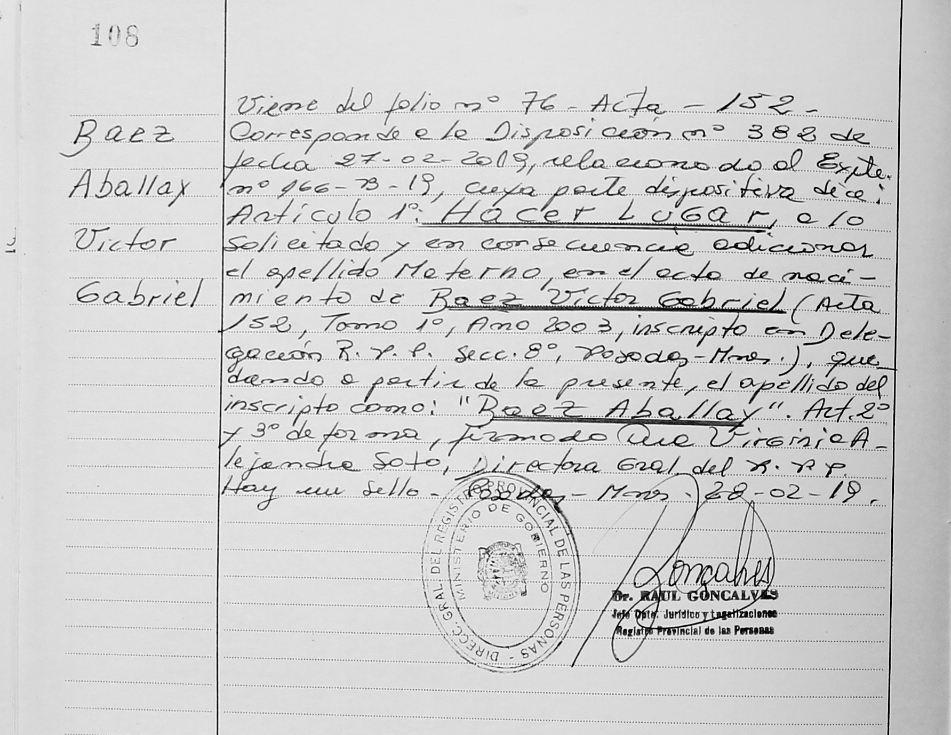 108
Baez
Aballay
Victor
Gabriel
Viene del folio nº 76 - Acta - 152 -
Corresponde a la Disposición nº 382 de
fecha 27-02-2019, relacionado al Expte.
nº 166-B-19, cuya parte dispositiva dice:
Artículo 1º: HACER LUGAR, a lo
solicitado y en consecuencia adicionar
el apellido Materno, en el acta de naci-
miento de Baez Victor Gabriel (Acta
152, Tomo 1º, Año 2003, inscripto en Dele-
gación R.P.P. Secc. 8º, Posadas-Mnes.), que
dando a partir de la presente, el apellido del
inscripto como: "Baez Aballay". Art. 2º
y 3º de forma, firmado Virginia A-
lejandra Soto, Directora Gral del R.P.P.
Hay un sello - Posadas - Mnes. 28-02-19.
DIRECC. GRAL. DEL REGISTRO PROVINCIAL DE LAS PERSONAS -
MINISTERIO DE GOBIERNO
Goncalves
Dr. RAUL GONCALVES
Jefe Dpto. Jurídico y Legalizaciones
Registro Provincial de las Personas